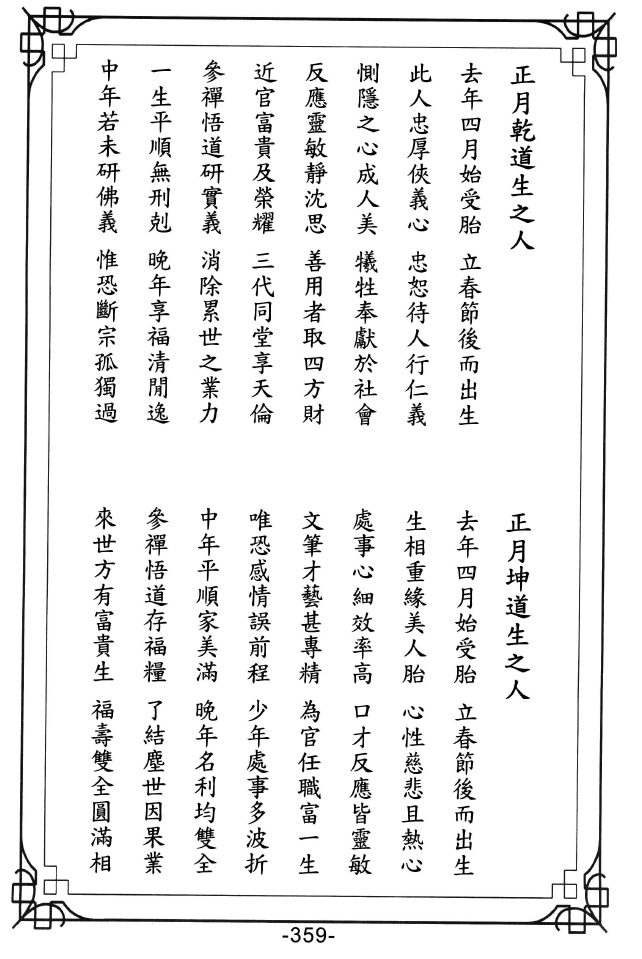 正月乾道生之人
去年四月始受胎　立春節後而出生
此人忠厚俠義心　忠恕待人行仁義
惻隱之心成人美　犧牲奉獻於社會
反應靈敏靜沈思　善用者取四方財
近官富貴及榮耀　三代同堂享天倫
參禪悟道研實義　消除累世之業力
一生平順無刑剋　晚年享福清閒逸
中年若未研佛義　惟恐斷宗孤獨過
正月坤道生之人
去年四月始受胎　立春節後而出生
生相重緣美人胎　心性慈悲且熱心
處事心細效率高　口才反應皆靈敏
文筆才藝甚專精　為官任職富一生
唯恐感情誤前程　少年處事多波折
中年平順家美滿　晚年名利均雙全
參禪悟道存福糧　了結塵世因果業
來世方有富貴生　福壽雙全圓滿相
-359-